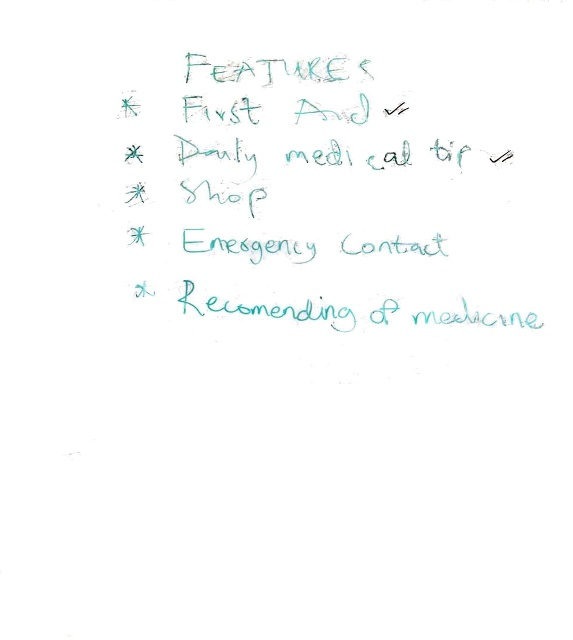 FEATURES
* First Aid ✓
* Daily medical tip ✓
* Shop
* Emergency Contact
* Recomending of medicine